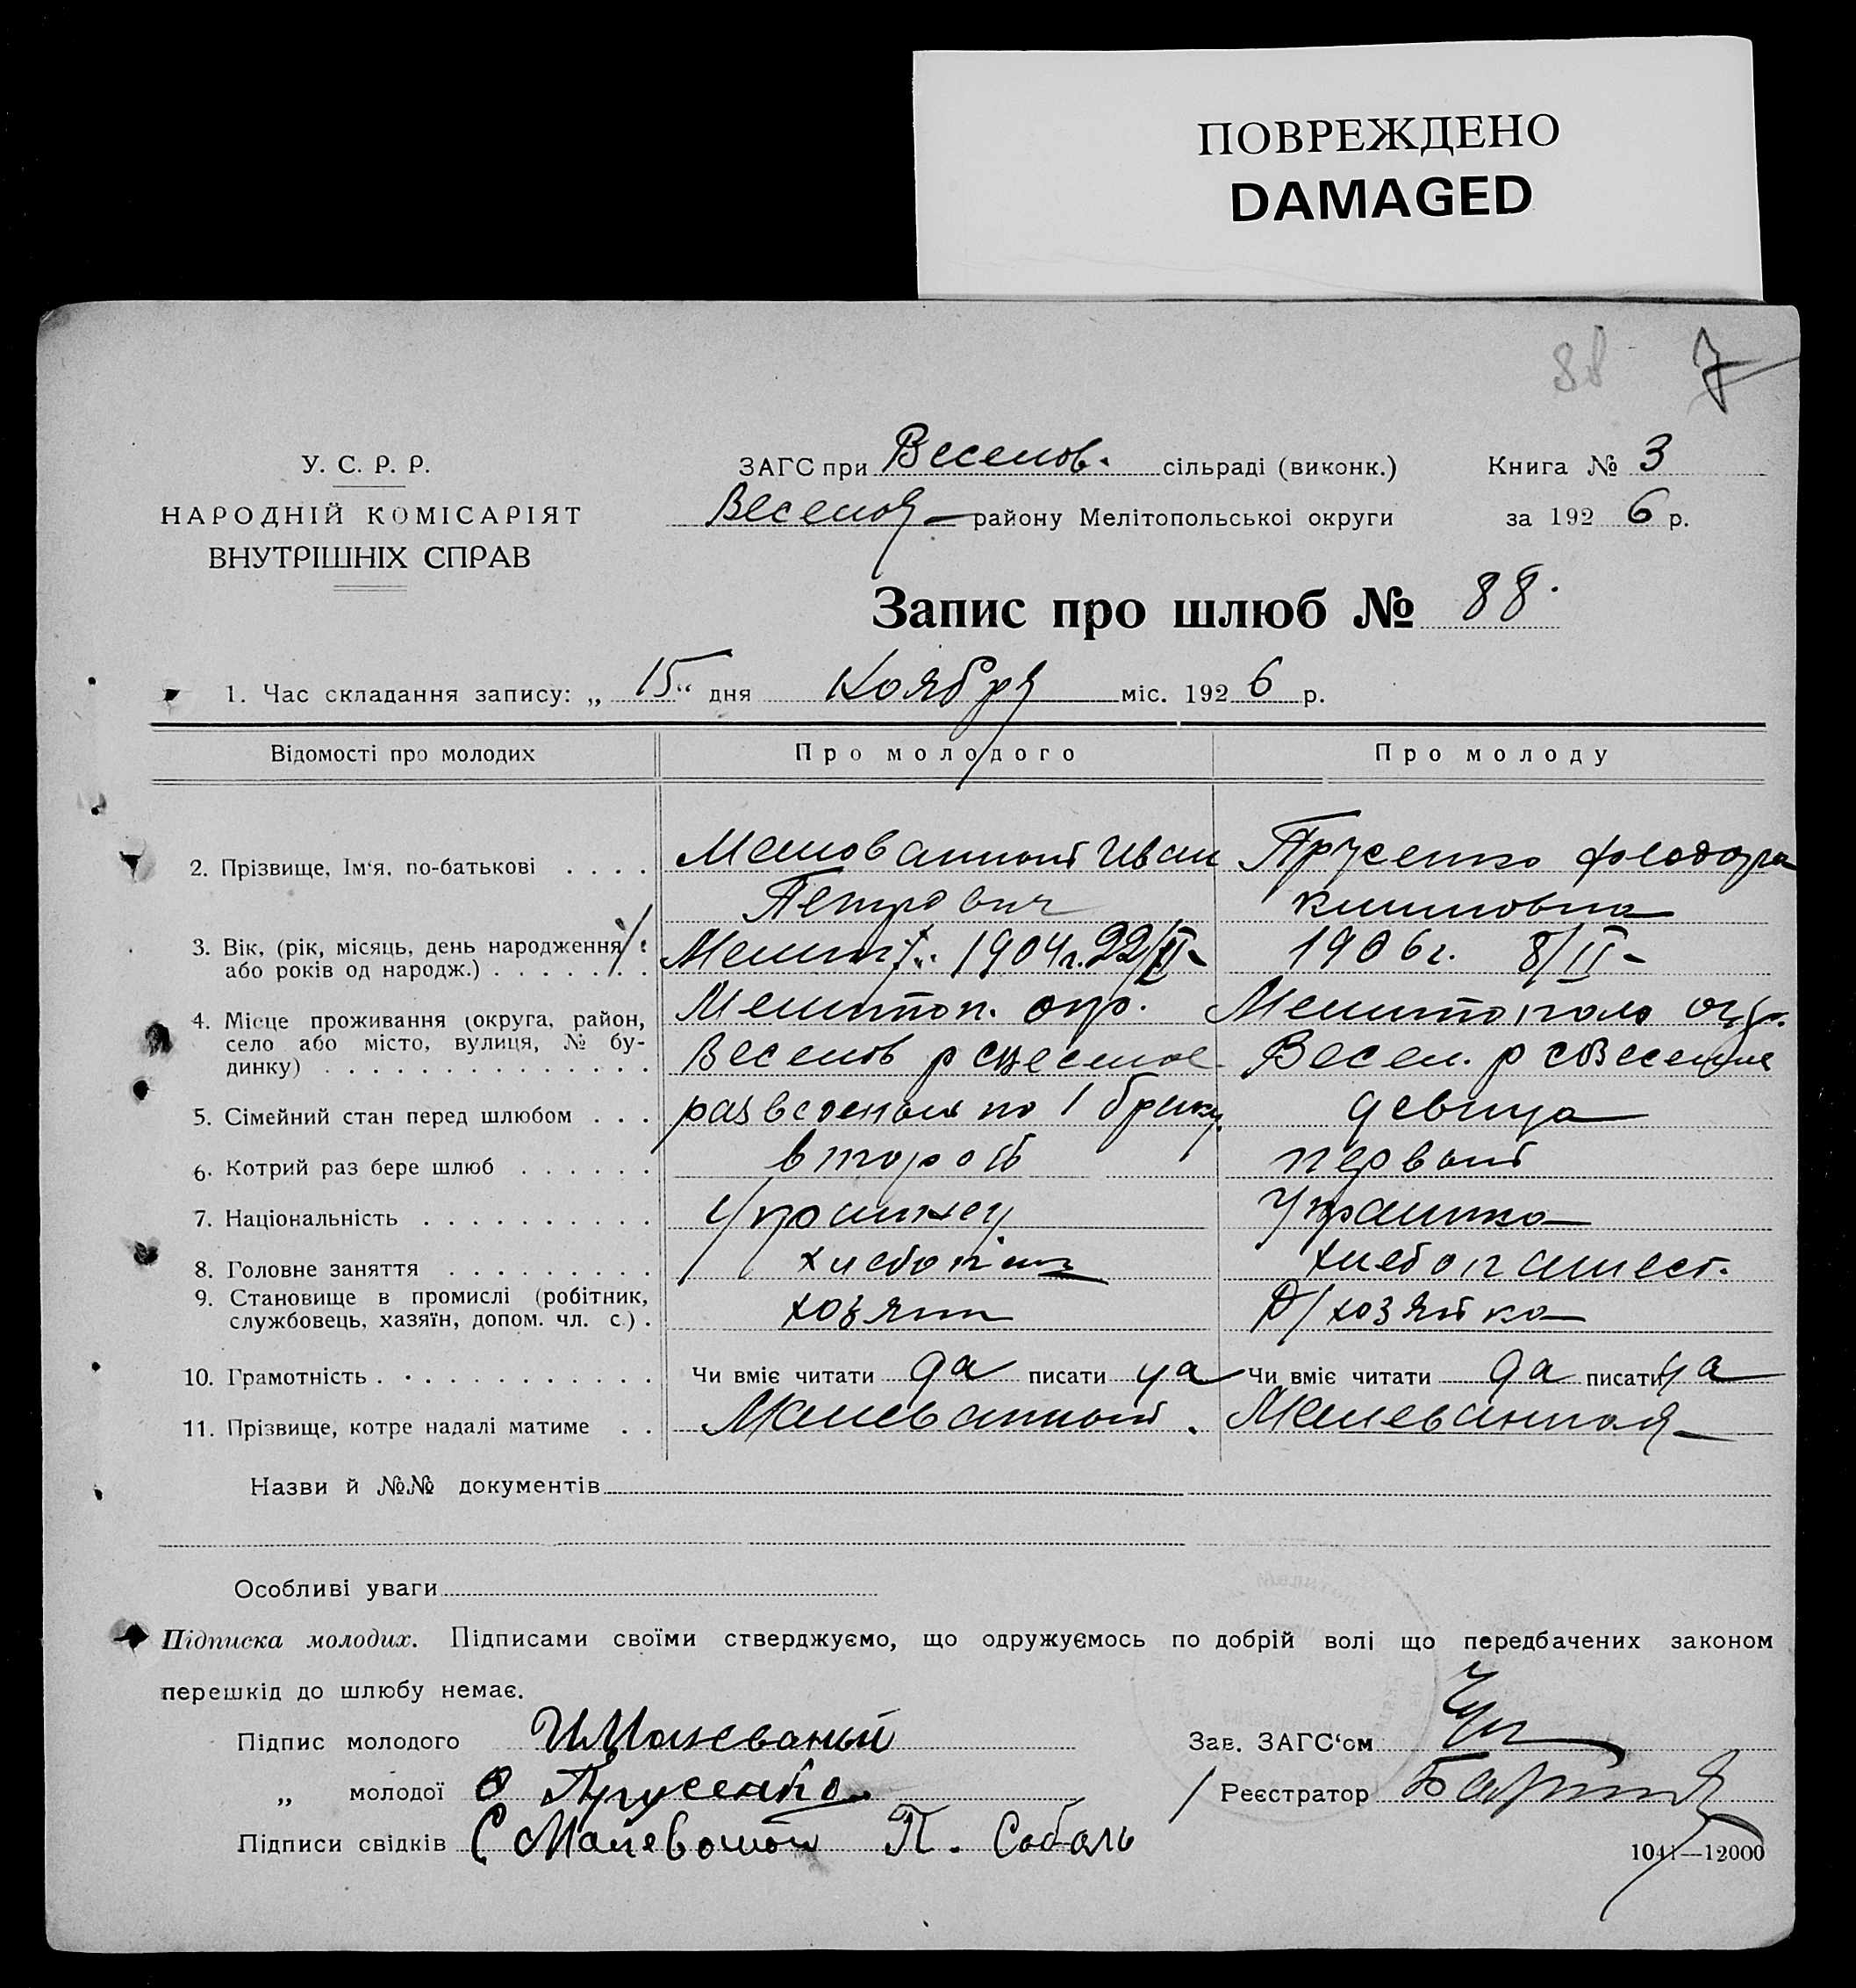 ПОВРЕЖДЕНО
DAMAGED
88 7
У. С. Р. Р.
НАРОДНІЙ КОМІСАРІЯТ
ВНУТРІШНІХ СПРАВ
ЗАГС при Веселов. сільраді (виконк.)
Веселов району Мелітопольської округи
Книга № 3
за 1926 р.
Запис про шлюб № 88.
1. Час складання запису: „ 15 " дня Ноября міс. 1926 р.
Відомості про молодих Про молодого Про молоду
2. Прізвище, Ім'я, по-батькові . . . . Малованный Иван Прусенко Феодора
Петрович
3. Вік, (рік, місяць, день народження 1904 г. 22/ 1906 г. 8/II
або років од народж.) . . . . . . .
4. Місце проживання (округа, район, Мелитоп. окр. Мелитополь окр.
село або місто, вулиця, № бу- Веселов р с Веселое Весел. р с Веселое
динку) . . . . . . . . . . . . . .
5. Сімейний стан перед шлюбом . . . разведеный по 1 браку девица
6. Котрий раз бере шлюб . . . . . . второй первый
7. Національність . . . . . . . . . . Украинец Украинка
8. Головне заняття . . . . . . . . . хлебопаш хлебопашест.
9. Становище в промислі (робітник, хозяин Д/хозяйка
службовець, хазяїн, допом. чл. с.) .
10. Грамотність . . . . . . . . . . . . Чи вміє читати да писати да Чи вміє читати да писати да
11. Прізвище, котре надалі матиме . . Малеванный. Малеванная
Назви й №№ документів
Особливі уваги
Підписка молодих. Підписами своїми стверджуємо, що одружуємось по добрій волі що передбачених законом
перешкід до шлюбу немає.
Підпис молодого И Малеваный Зав. ЗАГС'ом
„ молодої Прусенко Реєстратор
Підписи свідків С Малеваный П. Соболь
1041—12000